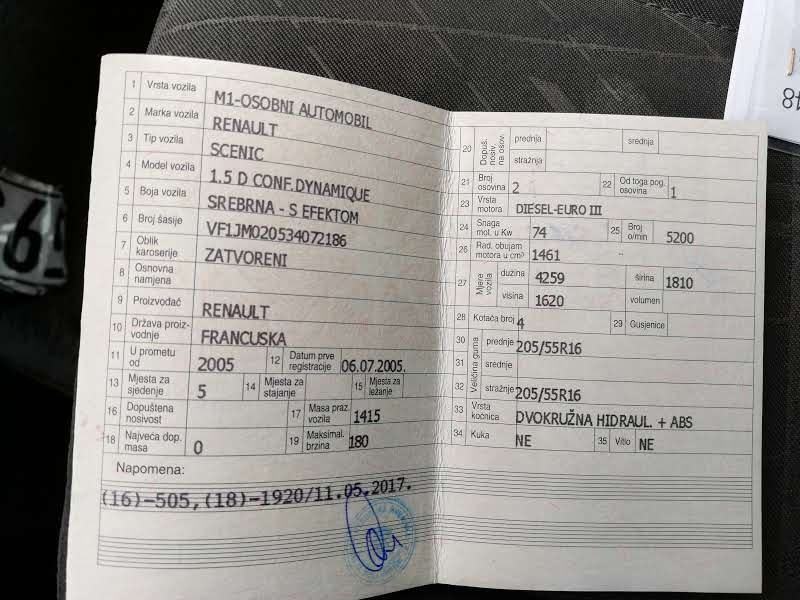 1 Vrsta vozila M1-OSOBNI AUTOMOBIL
2 Marka vozila RENAULT
3 Tip vozila SCENIC
4 Model vozila 1.5 D CONF.DYNAMIQUE
5 Boja vozila SREBRNA - S EFEKTOM
6 Broj šasije VF1JM020534072186
7 Oblik karoserije ZATVORENI
8 Osnovna namjena
9 Proizvođač RENAULT
10 Država proiz-vodnje FRANCUSKA
11 U prometu od 2005 12 Datum prve registracije 06.07.2005.
13 Mjesta za sjedenje 5 14 Mjesta za stajanje 15 Mjesta za ležanje
16 Dopuštena nosivost 17 Masa praz. vozila 1415
18 Najveća dop. masa 0 19 Maksimal. brzina 180
Napomena:
(16)-505,(18)-1920/11.05.2017.
20 Dopuš. nosiv. na osov. prednja srednja
stražnja
21 Broj osovina 2 22 Od toga pog. osovina 1
23 Vrsta motora DIESEL-EURO III
24 Snaga mot. u Kw 74 25 Broj o/min 5200
26 Rad. obujam motora u cm³ 1461
27 Mjere vozila dužina 4259 širina 1810
visina 1620 volumen
28 Kotača broj 4 29 Gusjenice
30 Veličina guma prednje 205/55R16
31 srednje
32 stražnje 205/55R16
33 Vrsta kočnica DVOKRUŽNA HIDRAUL. + ABS
34 Kuka NE 35 Vitlo NE